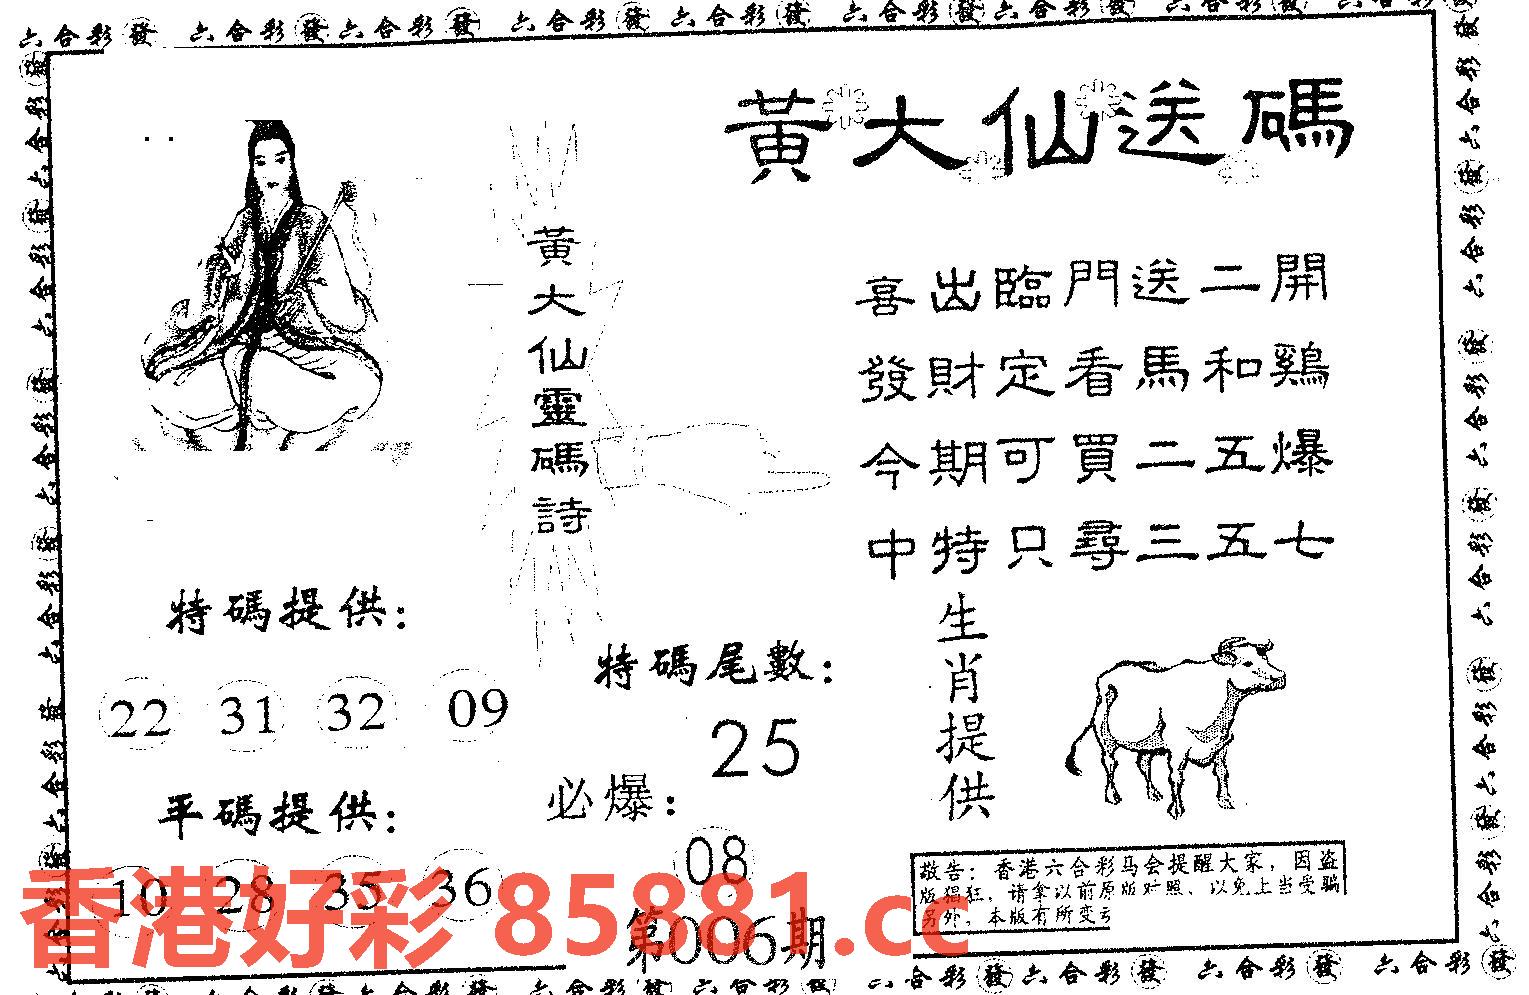 六合彩發 六合彩發 六合彩發 六合彩發 六合彩發 六合彩發 六合彩發 六合彩發 六合彩發
黃大仙送碼
喜出臨門送二開
發財定看馬和鷄
今期可買二五爆
中特只尋三五七
黃大仙靈碼詩
特碼提供：
22 31 32 09
平碼提供：
10 28 35 36
特碼尾數：
25
必爆：
08
第006期
生肖提供
敬告：香港六合彩马会提醒大家，因盗
版猖狂，请拿以前原版对照，以免上当受骗
另外，本版有所变亏
香港好彩 85881.cc
六合彩發 六合彩發 六合彩發 六合彩發